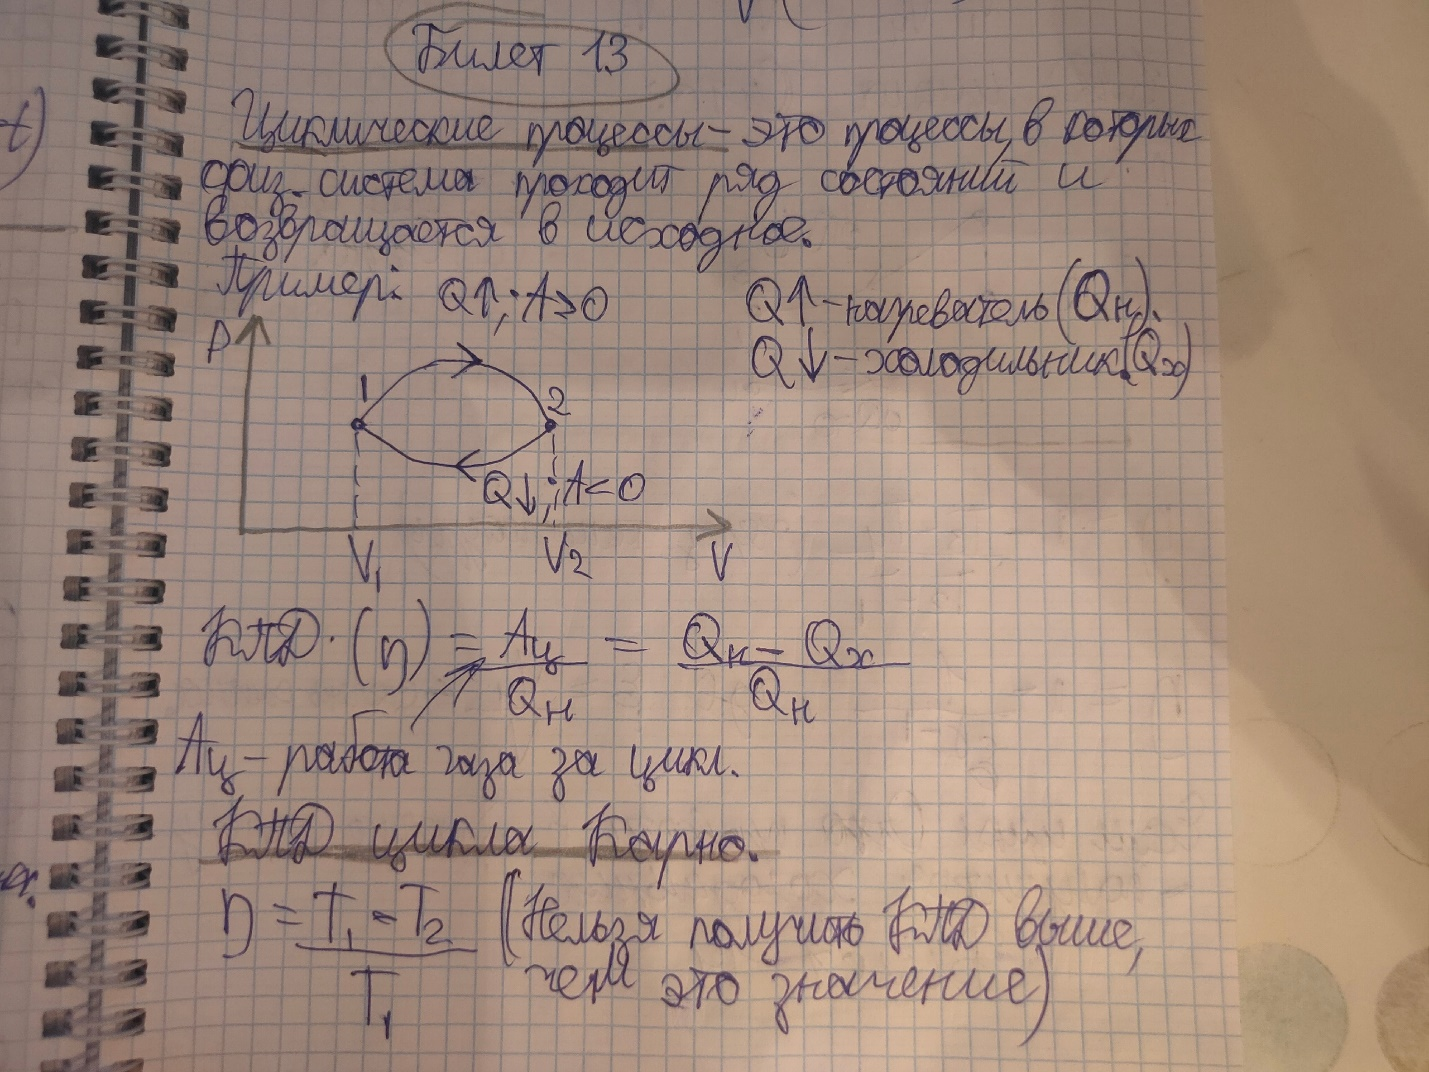 Билет 13
Циклические процессы - это процессы, в которых
физ. система проходит ряд состояний и
возвращается в исходное.
Пример: Q↑; A>0
Q↑ - нагреватель (Qн).
Q↓ - холодильник. (Qх)
P
1
2
Q↓; A<0
V₁ V₂ V
КПД. (η) = Aц / Qн = Qн - Qх / Qн
Aц - работа газа за цикл.
КПД цикла Карно.
η = T₁ - T₂ / T₁ (Нельзя получить КПД выше,
чем это значение)